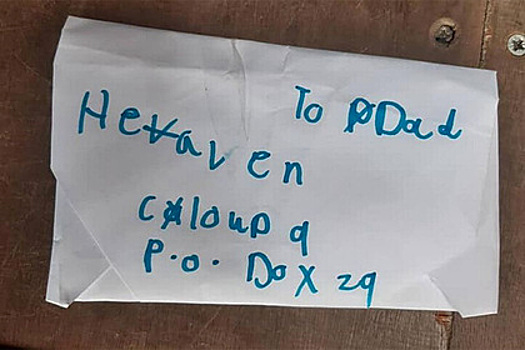 To Dad
Heaven
clouD 9
P.o. DoX 29